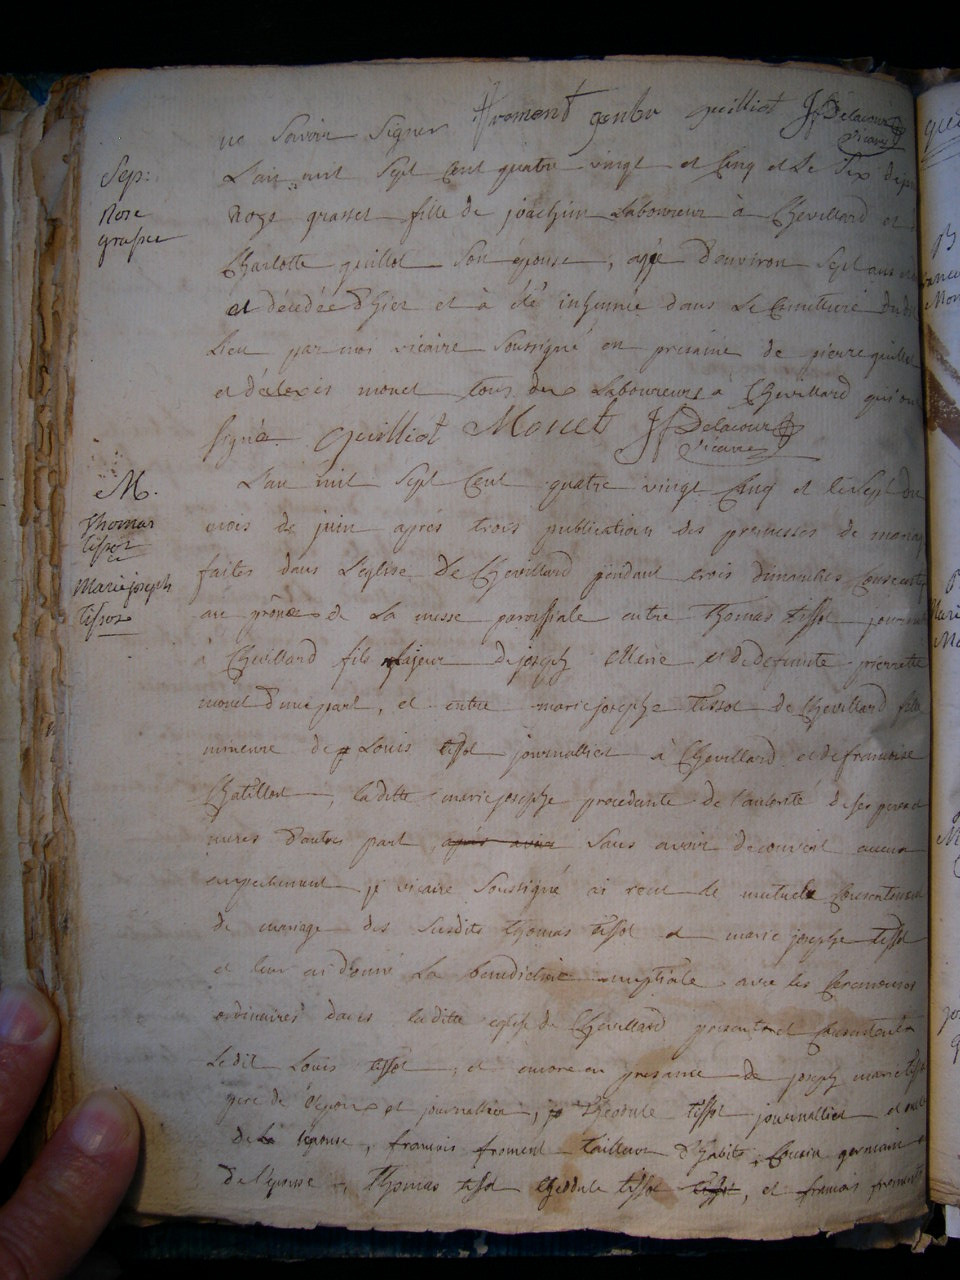 ne Savoir Signer froment genbr guilliot JfDelacour
Vicaire
Sep:
Rose
grasset
L'an mil Sept Cent quatre vingt et Cinq et Le Six de juin
Roze grasset fille de joachim Laboureur à Chevillard et
Charlotte guillot Son épouse, agé d'environ Sept ans
est décédée d'hier et à été inhumée dans Le Cimetiere du dit
Lieu par moi vicaire Soussigné en présence de pierre guillot
et d'alexis monet tous deux Laboureurs a Chevillard qui ont
Signé. Guilliot Monet JfDelacour
Vicaire
M.
Thomas
tissot
Marie joseph
tissot
L'an mil Sept Cent quatre vingt Cinq et le Sept du
mois de juin aprés trois publication des promesses de mariag
faites dans L'eglise de Chevillard pendant trois dimanches Consecutifs
au prône de La messe paroissiale entre Thomas tissot journa
à Chevillard fils Majeur de joseph Marie et de defunte pierrette
monet d'une part, et entre marie josephe tissot de Chevillard fille
mineure de Louis tissot journallier à Chevillard et de francoise
Chatillon, laditte marie josephe procedante de l'autorité de ses pere et
meres d'autre part après avoir Sans avoir decouvert aucun
empechement je vicaire Soussigné ai recu le mutuele Consentement
de mariage des Susdits thomas tissot et marie josephe tissot
et leur ai donné La benediction nuptiale avec les Ceremonies
ordinaires dans laditte eglise de Chevillard present et Consentent
Ledit Louis tissot, et encore en presence de joseph marie tissot
pere de l'époux et journallier, Theodule tissot journallier et
de la épouse, francois froment tailleur d'habits, Cousin germain
de l'épouse, Thomas tissot theodule tissot tissot, et francois froment